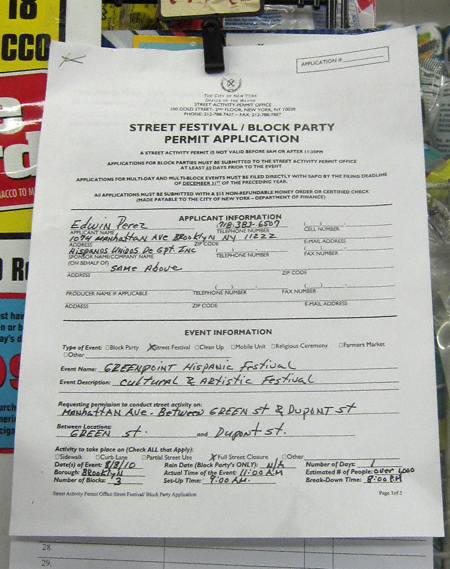 18
CCO
APPLICATION #
THE CITY OF NEW YORK
OFFICE OF THE MAYOR
STREET ACTIVITY PERMIT OFFICE
100 GOLD STREET- 2ND FLOOR, NEW YORK, NY 10038
PHONE: 212-788-7437 - FAX: 212-788-7887
STREET FESTIVAL / BLOCK PARTY
PERMIT APPLICATION
A STREET ACTIVITY PERMIT IS NOT VALID BEFORE 8AM OR AFTER 11:30PM
APPLICATIONS FOR BLOCK PARTIES MUST BE SUBMITTED TO THE STREET ACTIVITY PERMIT OFFICE
AT LEAST 60 DAYS PRIOR TO THE EVENT
APPLICATIONS FOR MULTI-DAY AND MULTI-BLOCK EVENTS MUST BE FILED DIRECTLY WITH SAPO BY THE FILING DEADLINE
OF DECEMBER 31ST OF THE PRECEDING YEAR.
All APPLICATIONS MUST BE SUBMITTED WITH A $15 NON-REFUNDABLE MONEY ORDER OR CERTIFIED CHECK
(MADE PAYABLE TO THE CITY OF NEW YORK - DEPARTMENT OF FINANCE)
APPLICANT INFORMATION
Edwin Perez 718-383-6507 ( )
APPLICANT NAME TELEPHONE NUMBER CELL NUMBER
1074 MANHATTAN AVE BROOKLYN NY 11222
ADDRESS ZIP CODE E-MAIL ADDRESS
Hispanos Unidos De GPT. Inc ( ) ( )
SPONSOR NAME/COMPANY NAME TELEPHONE NUMBER FAX NUMBER
(ON BEHALF OF)
SAME Above
ADDRESS ZIP CODE
( ) ( )
PRODUCER NAME IF APPLICABLE TELEPHONE NUMBER FAX NUMBER
ADDRESS ZIP CODE E-MAIL ADDRESS
EVENT INFORMATION
Type of Event: □Block Party XStreet Festival □Clean Up □Mobile Unit □Religious Ceremony □Farmers Market
□Other
Event Name: GREENPOINT HISPANIC FESTIVAL
Event Description: Cultural & Artistic Festival
Requesting permission to conduct street activity on:
MANHATTAN AVE - Between GREEN St & DUPONT ST
Between Locations:
GREEN St. and Dupont St.
Activity to take place on (Check ALL that Apply):
□Sidewalk □Curb Lane □Partial Street Use XFull Street Closure □Other
Date(s) of Event: 8/8/10 Rain Date (Block Party's ONLY): N/A Number of Days: 1
Borough: BROOKLYN Actual Time of the Event: 11:00 AM Estimated # of People: over 1,000
Number of Blocks: 3 Set-Up Time: 9:00 AM. Break-Down Time: 8:00 PM
Street Activity Permit Office Street Festival/ Block Party Application Page 1of 2
28.
29.